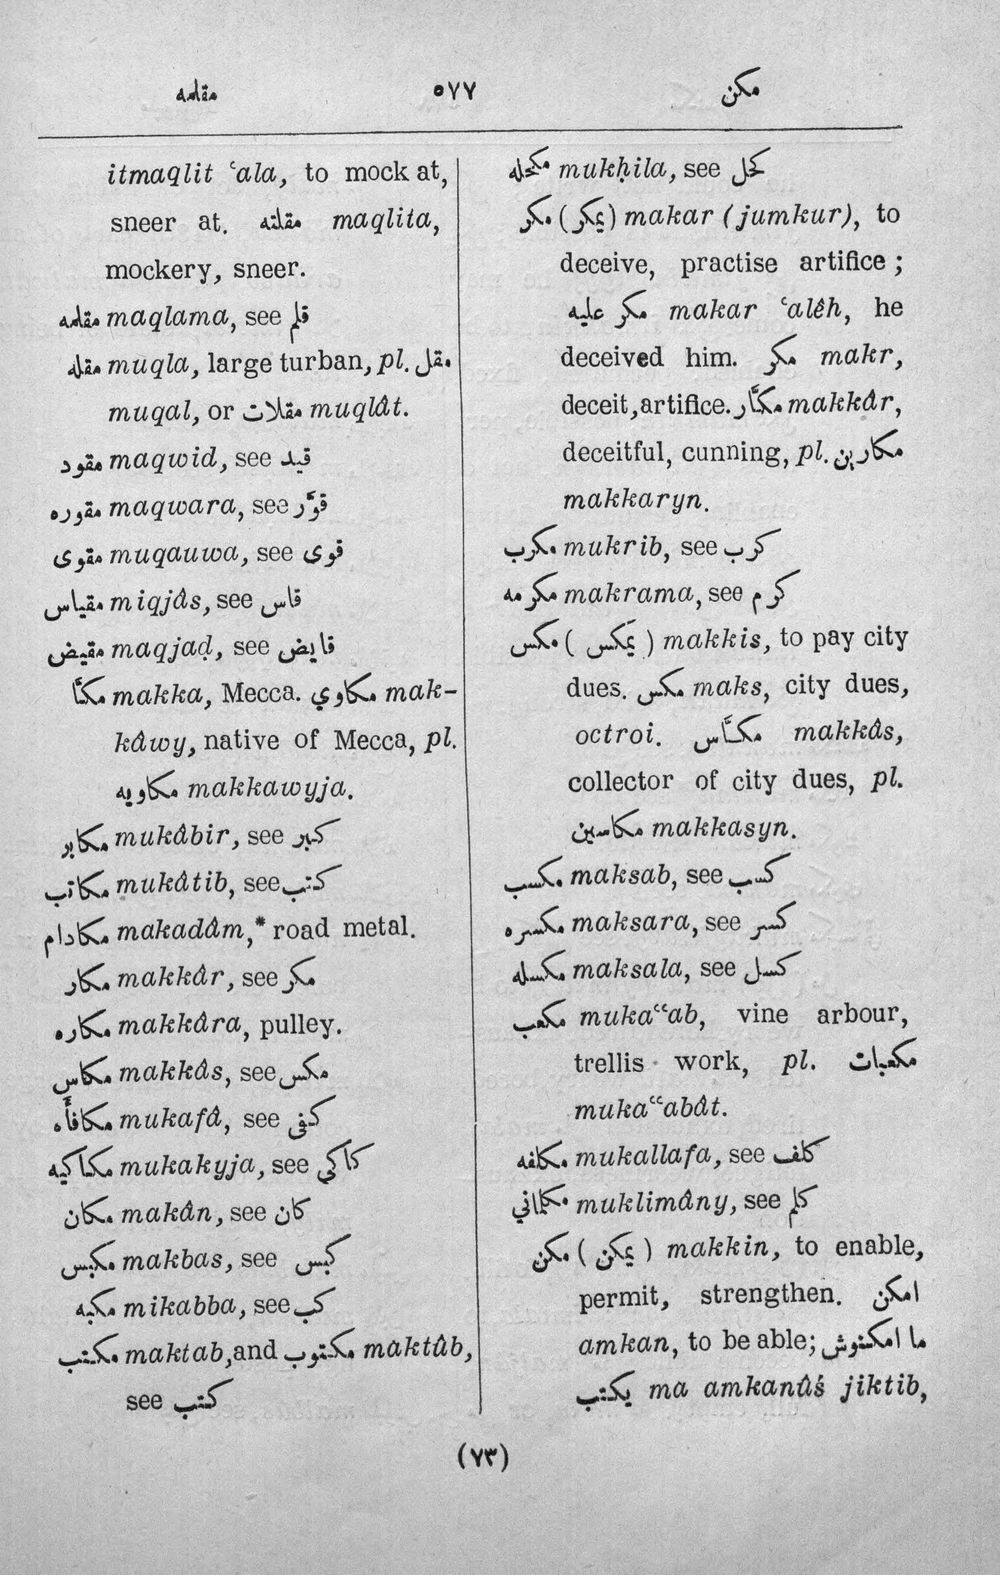 مقلمه ٥٧٧ مكن
itmaqlit ʿala, to mock at,
sneer at. مقلته maqlita,
mockery, sneer.
مقلمه maqlama, see قلم
مقله muqla, large turban, pl. مقل
muqal, or مقلات muqlât.
مقود maqwid, see قيد
مقوره maqwara, see قوّر
مقوى muqauwa, see قوى
مقياس miqjâs, see قاس
مقيض maqjaḍ, see قايض
مكّا makka, Mecca. مكاوي mak-
kâwy, native of Mecca, pl.
مكاويه makkawyja.
مكابر mukâbir, see كبر
مكاتب mukâtib, see كتب
مكادام makadâm,* road metal.
مكار makkâr, see مكر
مكاره makkâra, pulley.
مكاس makkâs, see مكس
مكافأه mukafâ, see كفى
مكاكيه mukakyja, see كاكي
مكان makân, see كان
مكبس makbas, see كبس
مكبه mikabba, see كب
مكتب maktab, and مكتوب maktûb,
see كتب
مكحله mukḥila, see كحل
مكر (يمكر) makar (jumkur), to
deceive, practise artifice;
مكر عليه makar ʿalêh, he
deceived him. مكر makr,
deceit, artifice. مكّار makkâr,
deceitful, cunning, pl. مكارين
makkaryn.
مكرب mukrib, see كرب
مكرمه makrama, see كرم
مكس (يمكس) makkis, to pay city
dues. مكس maks, city dues,
octroi. مكّاس makkâs,
collector of city dues, pl.
مكاسين makkasyn.
مكسب maksab, see كسب
مكسره maksara, see كسر
مكسله maksala, see كسل
مكعب mukaʿʿab, vine arbour,
trellis work, pl. مكعبات
mukaʿʿabât.
مكلفه mukallafa, see كلف
مكلماني muklimâny, see كلم
مكن (يمكن) makkin, to enable,
permit, strengthen. امكن
amkan, to be able; ما امكنوش
يكتب ma amkanûś jiktib,
(٧٣)